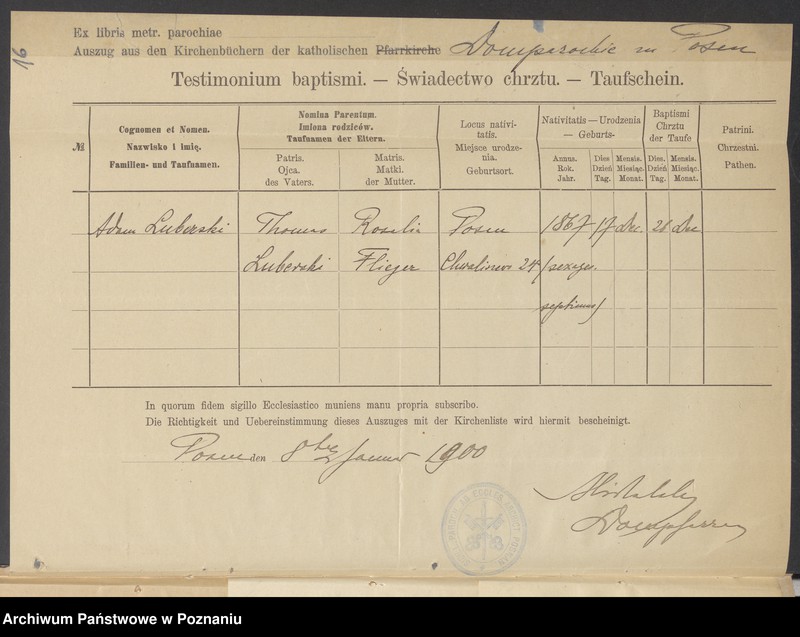 16
Ex libris metr. parochiae
Auszug aus den Kirchenbüchern der katholischen Pfarrkirche Domparochie zu Posen
Testimonium baptismi. — Świadectwo chrztu. — Taufschein.
№
Cognomen et Nomen.
Nazwisko i imię.
Familien- und Taufnamen.
Nomina Parentum.
Imiona rodziców.
Taufnamen der Eltern.
Patris.
Ojca.
des Vaters.
Matris.
Matki.
der Mutter.
Locus nativi-
tatis.
Miejsce urodze-
nia.
Geburtsort.
Nativitatis — Urodzenia
— Geburts-
Annus.
Rok.
Jahr.
Dies
Dzień
Tag.
Mensis.
Miesiąc.
Monat.
Baptismi
Chrztu
der Taufe
Dies.
Dzień
Tag.
Mensis.
Miesiąc.
Monat.
Patrini.
Chrzestni.
Pathen.
Adam Luberski Thomas Rosalia Posen 1867 17 Dec. 26 Dec
Luberski Flieger Chwaliszewo 24 (sexages.
septimus)
In quorum fidem sigillo Ecclesiastico muniens manu propria subscribo.
Die Richtigkeit und Uebereinstimmung dieses Auszuges mit der Kirchenliste wird hiermit bescheinigt.
Posen den 8ten Januar 1900
Dompfarrer
Archiwum Państwowe w Poznaniu